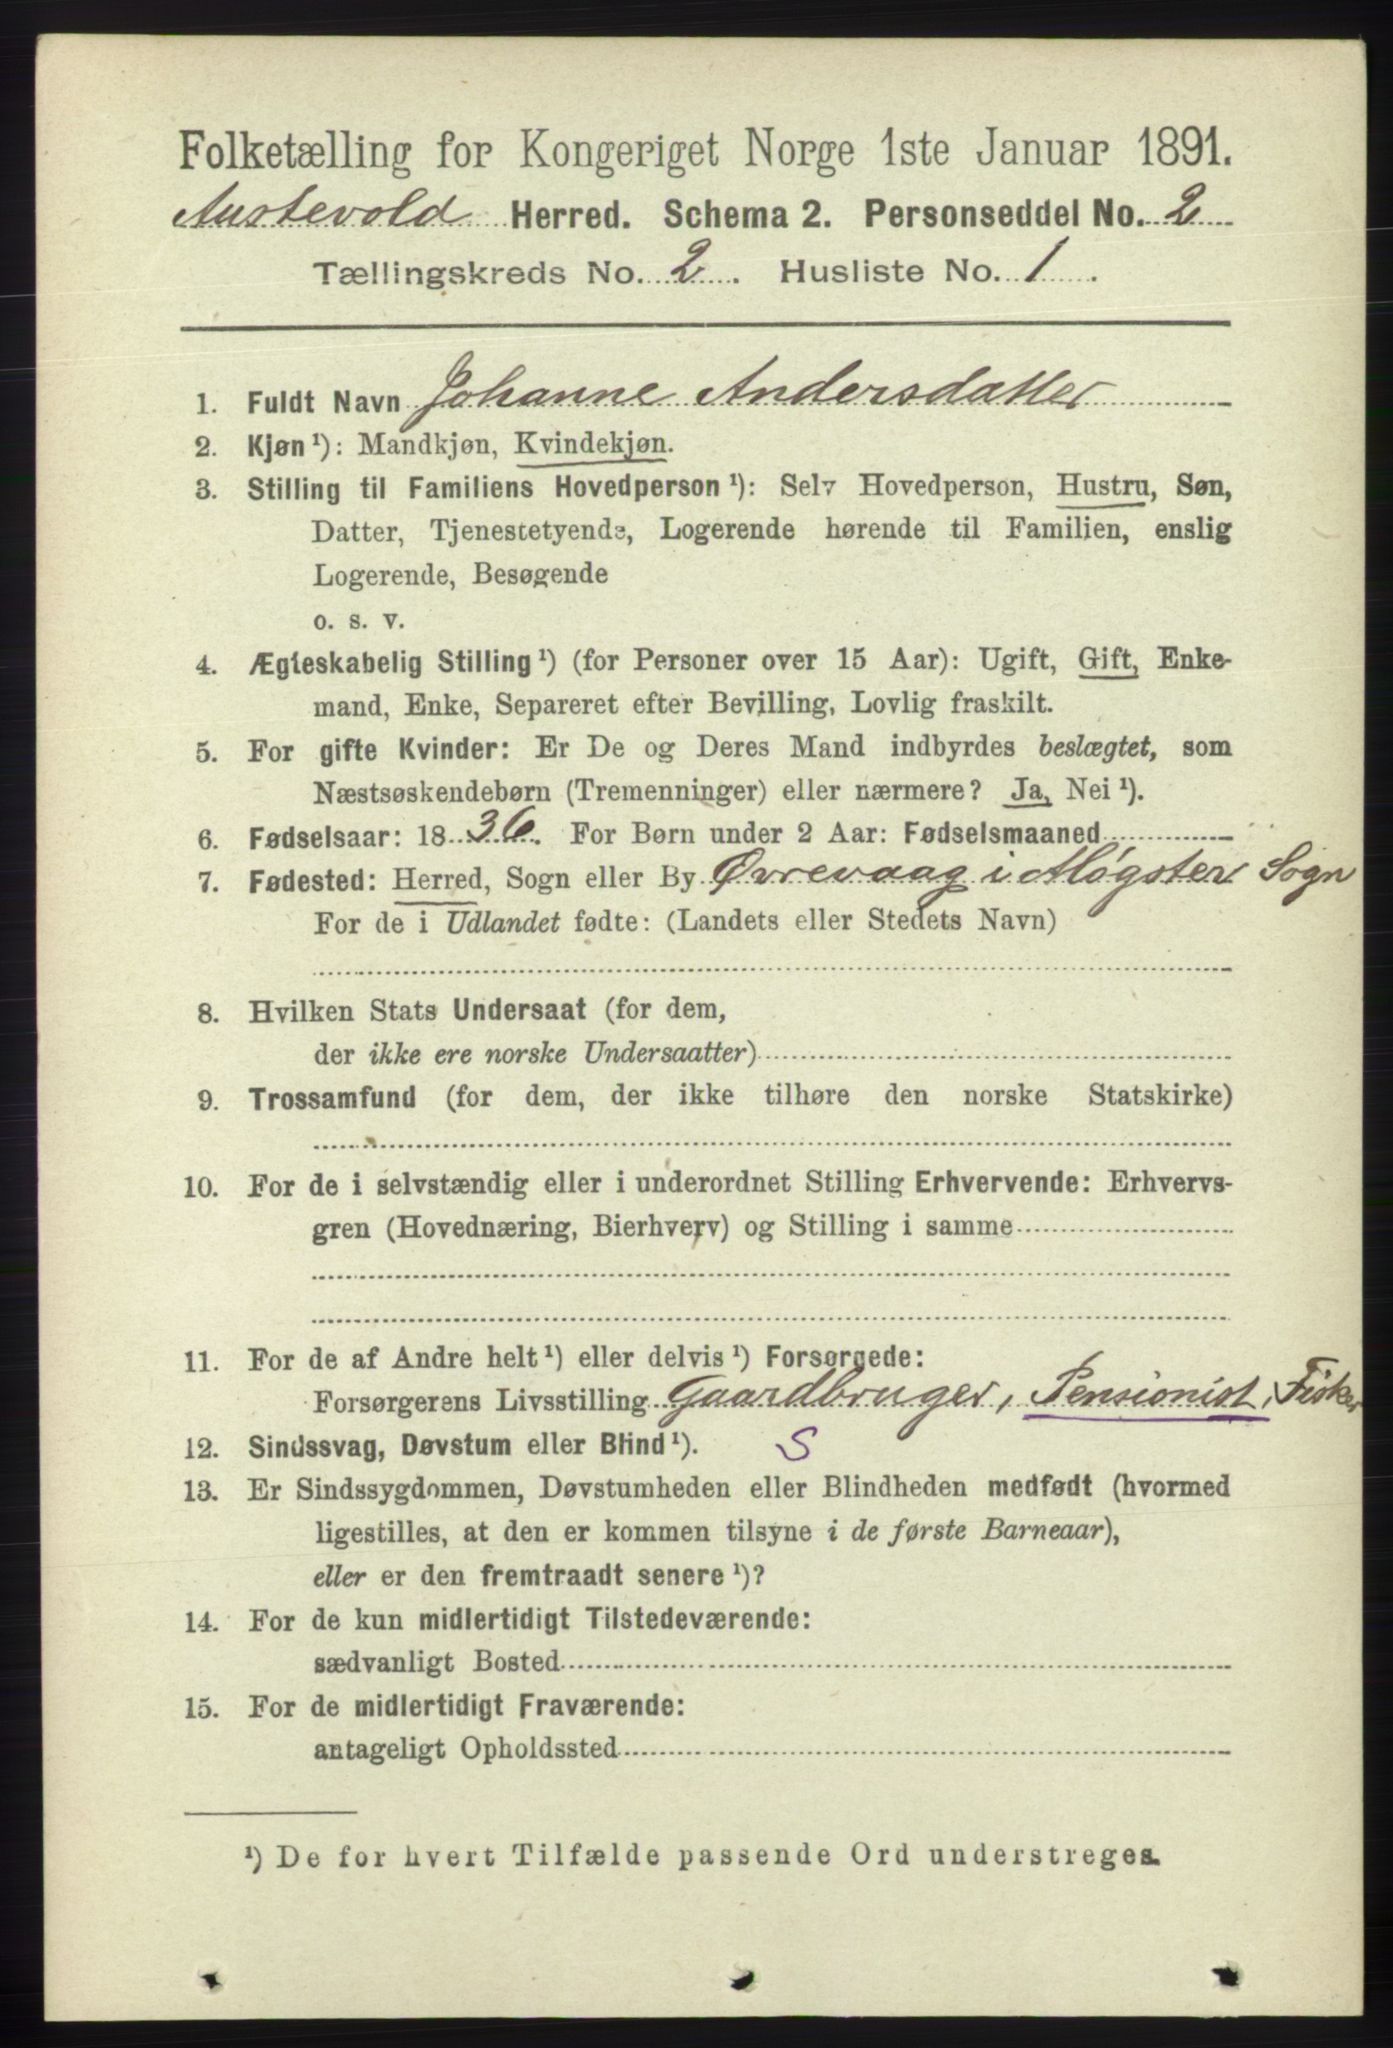 Folketælling for Kongeriget Norge 1ste Januar 1891.
Austevold Herred. Schema 2. Personseddel No. 2
Tællingskreds No. 2. Husliste No. 1.
1. Fuldt Navn Johanne Andersdatter
2. Kjøn ¹): Mandkjøn, Kvindekjøn.
3. Stilling til Familiens Hovedperson ¹): Selv Hovedperson, Hustru, Søn,
Datter, Tjenestetyende, Logerende hørende til Familien, enslig
Logerende, Besøgende
o. s. v.
4. Ægteskabelig Stilling ¹) (for Personer over 15 Aar): Ugift, Gift, Enke-
mand, Enke, Separeret efter Bevilling, Lovlig fraskilt.
5. For gifte Kvinder: Er De og Deres Mand indbyrdes beslægtet, som
Næstsøskendebørn (Tremenninger) eller nærmere? Ja, Nei ¹).
6. Fødselsaar: 1836. For Børn under 2 Aar: Fødselsmaaned
7. Fødested: Herred, Sogn eller By Øvrevaag i Møgster Sogn
For de i Udlandet fødte: (Landets eller Stedets Navn)
8. Hvilken Stats Undersaat (for dem,
der ikke ere norske Undersaatter)
9. Trossamfund (for dem, der ikke tilhøre den norske Statskirke)
10. For de i selvstændig eller i underordnet Stilling Erhvervende: Erhvervs-
gren (Hovednæring, Bierhverv) og Stilling i samme
11. For de af Andre helt ¹) eller delvis ¹) Forsørgede:
Forsørgerens Livsstilling Gaardbruger, Pensionist, Fisker
12. Sindssvag, Døvstum eller Blind ¹). S
13. Er Sindssygdommen, Døvstumheden eller Blindheden medfødt (hvormed
ligestilles, at den er kommen tilsyne i de første Barneaar),
eller er den fremtraadt senere ¹)?
14. For de kun midlertidigt Tilstedeværende:
sædvanligt Bosted
15. For de midlertidigt Fraværende:
antageligt Opholdssted
¹) De for hvert Tilfælde passende Ord understreges.